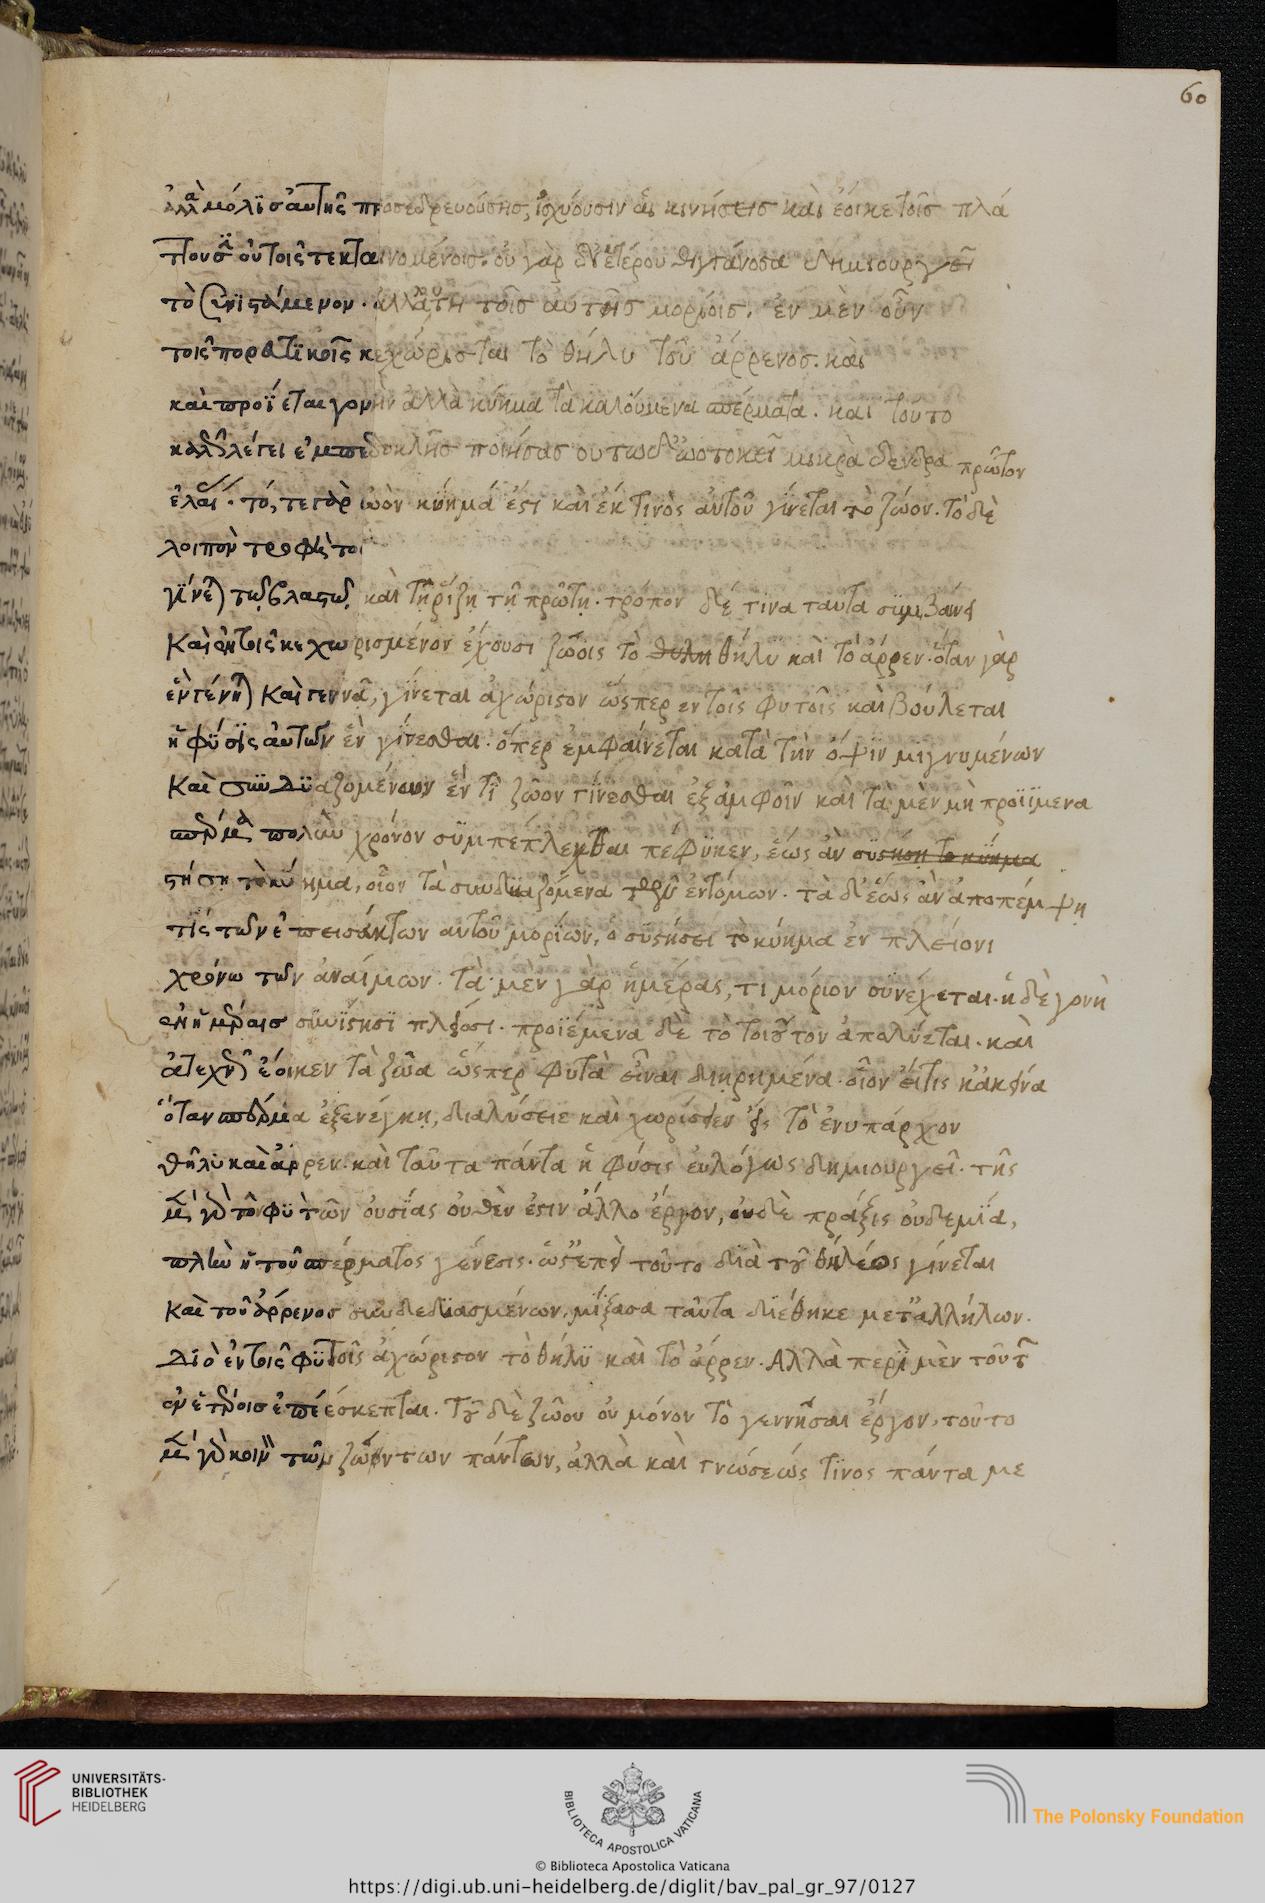 60
ἀλλὰ μόλις αὐτῆς προσεδρευούσης, ἰσχύουσιν αἱ κινήσεις καὶ ἔοικε τοῖς πλά
πουσιν οὐ τοῖς τεκταινομένοις. οὐ γὰρ δι' ἑτέρου θιγγάνουσα δημιουργεῖ
τὸ συνιστάμενον. ἀλλ' αὐτὴ τοῖς αὐτῆς μορίοις. ἐν μὲν οὖν
τοῖς πορευτικοῖς κεχώρισται τὸ θῆλυ τοῦ ἄρρενος. καὶ
καὶ προΐεται γονὴν ἀλλὰ κύημα τὰ καλούμενα σπέρματα. καὶ τοῦτο
καλῶς λέγει ἐμπεδοκλῆς ποιήσας οὕτω δ' ὠοτοκεῖ μικρὰ δένδρα πρῶτον
ἐλαίας. τό, τε γὰρ ὠὸν κύημά ἐστι καὶ ἐκ τινὸς αὐτοῦ γίνεται τὸ ζῶον. τὸ δὲ
λοιπὸν τροφὴ το
γίνεται τῷ βλαστῷ καὶ τῇ ῥίζῃ τῇ πρώτῃ. τρόπον δέ τινα ταυτα συμβαίνει
Καὶ ἐν τοῖς κεχωρισμένον ἔχουσι ζῴοις τὸ θῆλυ καὶ τὸ ἄρρεν. ὅταν γὰρ
ἓν γένηται Καὶ γεννᾶ, γίνεται ἀχώριστον ὥσπερ ἐν τοῖς φυτοῖς καὶ βούλεται
ἡ φύσις αὐτῶν ἓν γίνεσθαι. ὅπερ ἐμφαίνεται κατὰ τὴν ὄψιν μιγνυμένων
Καὶ συνδυαζομένων ἕν τι ζῶον γίνεσθαι ἐξ ἀμφοῖν καὶ τὰ μὲν μὴ προϊέμενα
σπέρμα πολὺν χρόνον συμπέπλεκται πέφυκεν, ἕως ἂν συστήσῃ το κύημα
στήσῃ τὸ κύημα, οἷον τὰ συνδυαζόμενα τῶν ἐντόμων. τὰ δ' ἕως ἂν ἀποπέμψῃ
τὶ τῶν ἐπεισάκτων αὐτοῦ μορίων, ὃ συστήσει τὸ κύημα ἐν πλείονι
χρόνω τῶν ἀναίμων. τὰ μὲν γὰρ ἡμέρας, τι μόριον συνέχεται. ἡ δὲ γονὴ
ἐν ἡμέραις συνίστησι πλείοσι. προϊέμενα δὲ τὸ τοιοῦτον ἀπολύεται. καὶ
ἀτεχνῶς ἔοικεν τὰ ζῶα ὥσπερ φυτὰ εἶναι διηρημένα. οἷον εἴ τις κἀκεῖνα
ὅταν σπέρμα ἐξενέγκῃ, διαλύσειε καὶ χωρίσειεν εἰς τὸ ἐνυπάρχον
θῆλυ καὶ ἄρρεν. καὶ ταῦτα πάντα ἡ φύσις εὐλόγως δημιουργεῖ. τῆς
μὲν γὰρ τῶν φυτῶν οὐσίας οὐθὲν ἐστιν ἄλλο ἔργον, οὐδὲ πράξις οὐδεμία,
πλὴν ἡ τοῦ σπέρματος γένεσις. ὥστ' ἐπεὶ τοῦτο διὰ τοῦ θήλεος γίνεται
Καὶ τοῦ ἄρρενος συνδεδυασμένων, μίξασα ταῦτα διέθηκε μετ' ἀλλήλων.
Διὸ ἐν τοῖς φυτοῖς ἀχώριστον τὸ θῆλυ καὶ τὸ ἄρρεν. Ἀλλὰ περὶ μὲν τούτων
ἐν ἑτέροις ἐπέσκεπται. τοῦ δὲ ζῴου οὐ μόνον τὸ γεννῆσαι ἔργον, τοῦτο
μὲν γὰρ κοινὸν τῶν ζώντων πάντων, ἀλλὰ καὶ γνώσεώς τινος πάντα με
UNIVERSITÄTS-
BIBLIOTHEK
HEIDELBERG
BIBLIOTECA APOSTOLICA VATICANA
The Polonsky Foundation
© Biblioteca Apostolica Vaticana
https://digi.ub.uni-heidelberg.de/diglit/bav_pal_gr_97/0127